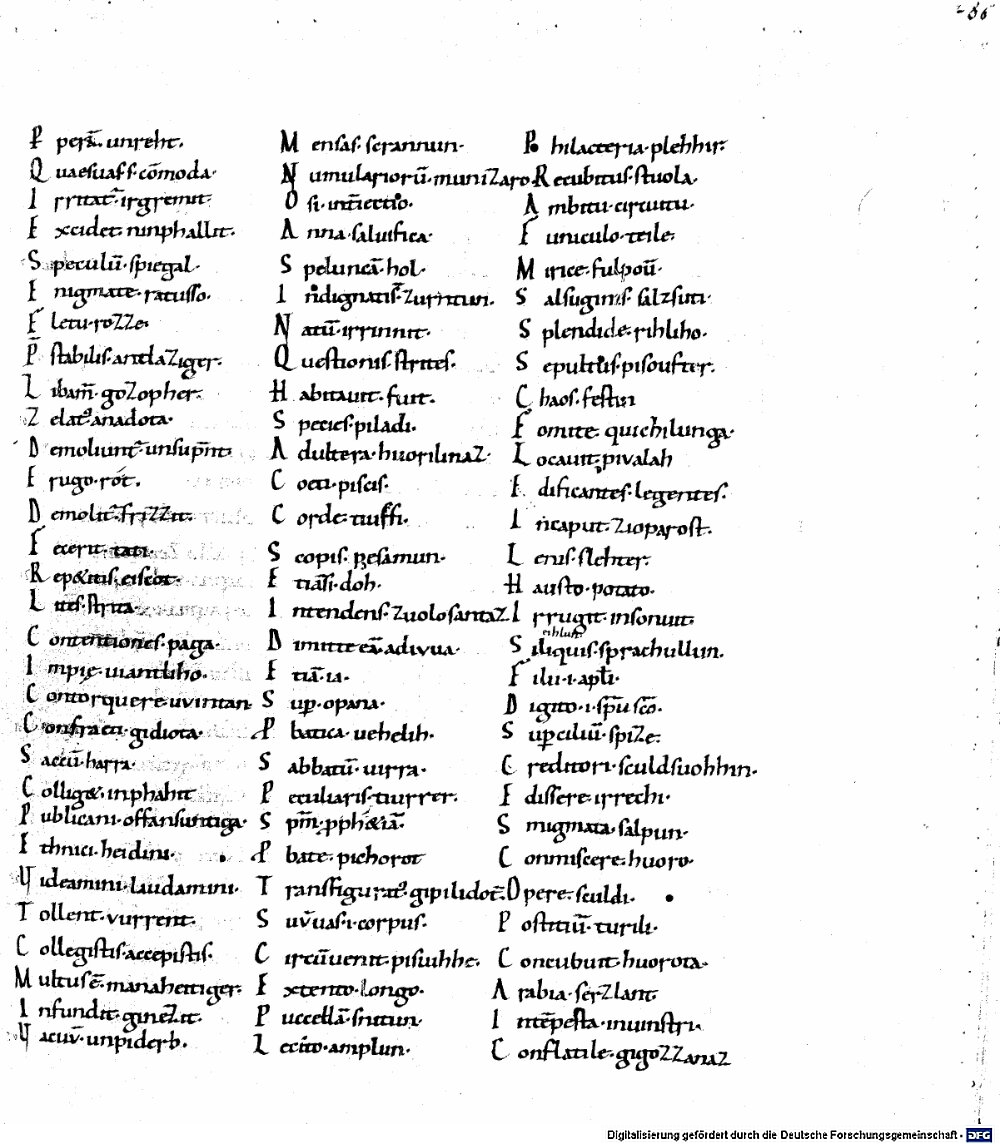 -86
P perā. unreht.
Q uaesuass. cōmoda.
I rritat̄. irgremit.
E xcidet. ninphallit.
S peculū. spiegal.
E nigmate. ratusso.
F letu. rozze.
P̄ stabilis. antlaziger.
L ibam̄. gozopher.
Z elat᷒. anadota.
D emoliunt̄. unsupn̄t.
E rugo. rót.
D emolit̄. frizzit.
F ecerit. tati.
R ep&itis. eiscot.
L ites. strita.
C ontentiones. paga.
I mpię. uiantliho.
C ontorquere. uvintan
C onfracti. gidiota.
S accū. harra.
C ollig&. inphahit
P ublicani. offansuntiga.
E thnici. heidini.
V ideamini. laudamini.
T ollent. vurrent.
C ollegistis. accepistis.
M ultusē. manaheitiger.
I nfundit. ginezit.
V acuv̄. unpiderb.
M ensas. scrannun.
N umulariorū. munizaro
O si. int̄iectio.
A nna. saluifica.
S peluncā. hol.
I ndignatis̄. zurntun.
N atū. irrinnit.
Q uestionis. strites.
H abitauit. fuit.
S pecies. piladi.
A dultera. huorilinaz.
C oeti. piscis.
C orde. tiuffi.
S copis. pesamun.
E tiāsi. doh.
I ntendens. zuolosantaz
D imitte eā. adivua.
E tiā. ia.
S up̱. opana.
P batica. uehelih.
S abbatū. uirra.
P eculiaris. tiurrer.
S pm̄. ꝓph&iā.
P bate. pichorot
T ransfigurat᷒. gipilidot̄.
S uv̄uas. i. corpus.
C ircūuenit. pisuihhc.
E xtento. longo.
P uccellā. snitun.
L ecito. amplun.
P hilacteria. plehhir.
R ecubitus. stuola.
A mbitu. circuitu.
F uniculo. teile.
M irice. fulpoū.
S alsuginis. salzsuti.
S plendide. rihliho.
S epultus. pisoufter.
C haos. festin
F omite. quichilunga.
L ocauit. pivalah
E dificantes. legentes.
I ncaput. zioparost.
L enis. slehter.
H austo. potato.
I rrugit. insonuit.
rihlun
S iliquis. sprachullun.
F ilu. i. apłi.
D igito. i. sp̄u scō.
S up̱ciliū. spize.
C reditori. sculdsuohhin.
E dissere. irrechi.
S migmata. salpun.
C onmiscere. huoro.
O pere. sculdi.
P ostitiū. turili.
C oncubuit. huorota.
A rabia. serzlant.
I ntēpesta. inuinstri.
C onflatile. gigozzanaz
Digitalisierung gefördert durch die Deutsche Forschungsgemeinschaft - DFG